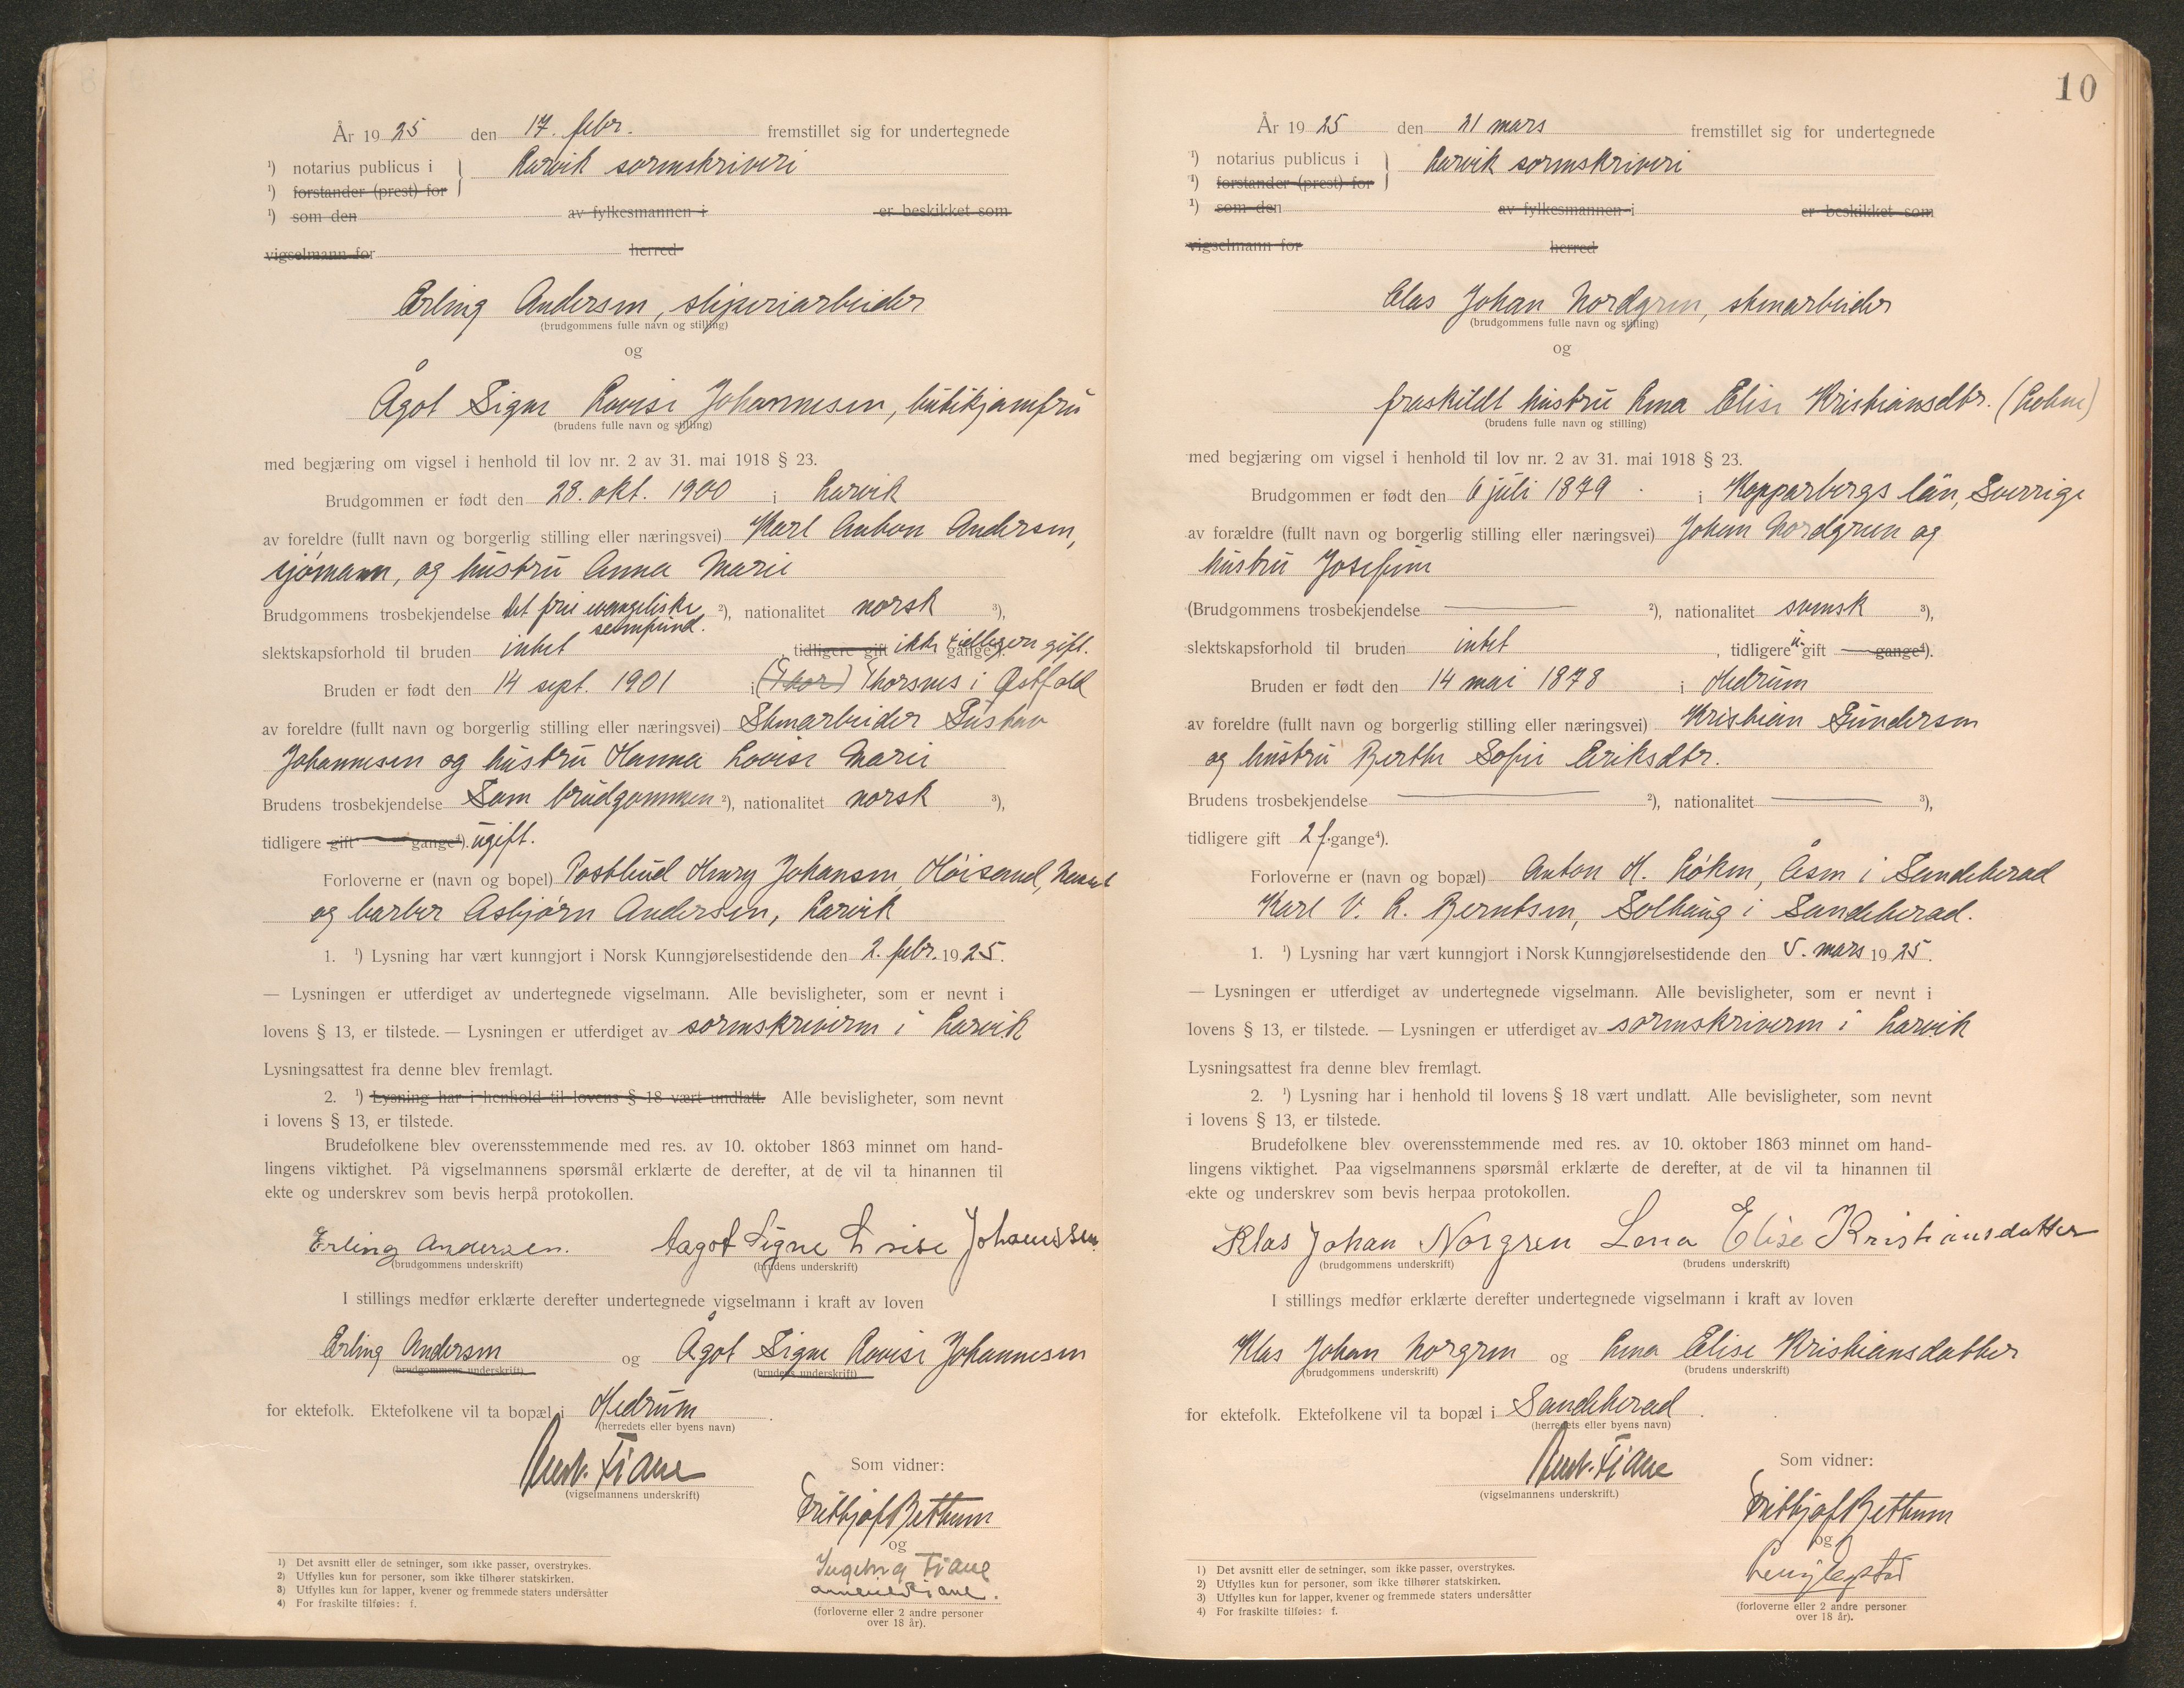 År 1925 den 17. febr. fremstillet sig for undertegnede
¹) notarius publicus i Larvik sorenskriveri
¹) forstander (prest) for
¹) som den av fylkesmannen i er beskikket som
vigselmann for herred
Erling Andersen, sliperiarbeider
(brudgommens fulle navn og stilling)
og
Ågot Signe Lovise Johannesen, butikjomfru
(brudens fulle navn og stilling)
med begjæring om vigsel i henhold til lov nr. 2 av 31. mai 1918 § 23.
Brudgommen er født den 28. okt. 1900 i Larvik
av foreldre (fullt navn og borgerlig stilling eller næringsvei) Karl Anton Andersen,
sjømann, og hustru Anna Marie
Brudgommens trosbekjendelse Det frie evangeliske ²), nationalitet norsk ³),
samfund.
slektskapsforhold til bruden intet, tidligere gift ikke tidligere gift. gange
Bruden er født den 14 sept. 1901 i (Thor) Thorsnes i Østfold
av foreldre (fullt navn og borgerlig stilling eller næringsvei) Stenarbeider Gustav
Johannesen og hustru Hanna Lovise Marie
Brudens trosbekjendelse Som brudgommen ²), nationalitet norsk ³),
tidligere gift gange⁴). ugift.
Forloverne er (navn og bopel) Postbud Henry Johansen, Høisand,
og barber Asbjørn Andersen, Larvik
1. ¹) Lysning har vært kunngjort i Norsk Kunngjørelsestidende den 2. febr. 1925.
— Lysningen er utferdiget av undertegnede vigselmann. Alle bevisligheter, som er nevnt i
lovens § 13, er tilstede. — Lysningen er utferdiget av sorenskriveren i Larvik
Lysningsattest fra denne blev fremlagt.
2. ¹) Lysning har i henhold til lovens § 18 vært undlatt. Alle bevisligheter, som nevnt
i lovens § 13, er tilstede.
Brudefolkene blev overensstemmende med res. av 10. oktober 1863 minnet om hand-
lingens viktighet. På vigselmannens spørsmål erklærte de derefter, at de vil ta hinannen til
ekte og underskrev som bevis herpå protokollen.
Erling Andersen. Aagot Signe Lovise Johannssen.
(brudgommens underskrift) (brudens underskrift)
I stillings medfør erklærte derefter undertegnede vigselmann i kraft av loven
Erling Andersen og Ågot Signe Lovise Johannesen
(brudgommens underskrift) (brudens underskrift)
for ektefolk. Ektefolkene vil ta bopæl i Hedrum.
(herredets eller byens navn)
Fiane
(vigselmannens underskrift)
Som vidner:
Frithjof Bettum
og
Ingeborg Fiane
Fiane.
(forloverne eller 2 andre personer
over 18 år).
1) Det avsnitt eller de setninger, som ikke passer, overstrykes.
2) Utfylles kun for personer, som ikke tilhører statskirken.
3) Utfylles kun for lapper, kvener og fremmede staters undersåtter
4) For fraskilte tilføies: f.
10
År 1925 den 21 mars fremstillet sig for undertegnede
¹) notarius publicus i Larvik sorenskriveri
¹) forstander (prest) for
¹) som den av fylkesmannen i er beskikket som
vigselmann for herred
Clas Johan Nordgren, stenarbeider
(brudgommens fulle navn og stilling)
og
fraskildt hustru Lena Elise Kristiansdtr.
(brudens fulle navn og stilling)
med begjæring om vigsel i henhold til lov nr. 2 av 31. mai 1918 § 23.
Brudgommen er født den 6 juli 1879 i Kopparbergs län, Sverrige
av forældre (fullt navn og borgerlig stilling eller næringsvei) Johan Nordgren og
hustru Josefine
(Brudgommens trosbekjendelse ²), nationalitet svensk ³),
slektskapsforhold til bruden intet, tidligere u-gift gange⁴).
Bruden er født den 14 mai 1878 i Hedrum
av foreldre (fullt navn og borgerlig stilling eller næringsvei) Kristian Gundersen
og hustru Berthe Sofie Eriksdtr.
Brudens trosbekjendelse ²), nationalitet ³),
tidligere gift 2 f. gange⁴).
Forloverne er (navn og bopæl) Anton H. Løken, Åsen i Sandeherad
Karl V. L. Berntsen, Solhaug i Sandeherad.
1. ¹) Lysning har vært kunngjort i Norsk Kunngjørelsestidende den 5. mars 1925.
— Lysningen er utferdiget av undertegnede vigselmann. Alle bevisligheter, som er nevnt i
lovens § 13, er tilstede. — Lysningen er utferdiget av sorenskriveren i Larvik
Lysningsattest fra denne blev fremlagt.
2. ¹) Lysning har i henhold til lovens § 18 vært undlatt. Alle bevisligheter, som nevnt
i lovens § 13, er tilstede.
Brudefolkene blev overensstemmende med res. av 10. oktober 1863 minnet om hand-
lingens viktighet. Paa vigselmannens spørsmål erklærte de derefter, at de vil ta hinannen til
ekte og underskrev som bevis herpaa protokollen.
Klas Johan Norgren Lena Elise Kristiansdatter
(brudgommens underskrift) (brudens underskrift)
I stillings medfør erklærte derefter undertegnede vigselmann i kraft av loven
Klas Johan Norgren og Lena Elise Kristiansdatter
(brudgommens underskrift) (brudens underskrift)
for ektefolk. Ektefolkene vil ta bopæl i Sandeherad.
(herredets eller byens navn)
Fiane
(vigselmannens underskrift.)
Som vidner:
Frithjof Bettum
og
(forloverne eller 2 andre personer
over 18 år).
1) Det avsnitt eller de setninger, som ikke passer, overstrykes.
2) Utfylles kun for personer, som ikke tilhører statskirken.
3) Utfylles kun for lapper, kvener og fremmede staters undersåtter
4) For fraskilte tilføies: f.